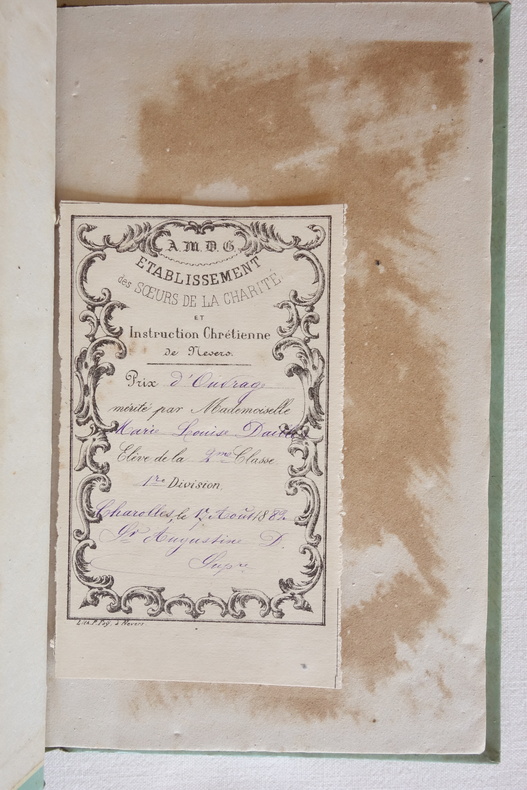 A. M. D. G.
ETABLISSEMENT
des SŒURS DE LA CHARITÉ
ET
Instruction Chrétienne
de Nevers.
Prix d'Ouvrage
mérité par Mademoiselle
Marie Louise
Elève de la 2me Classe
1re Division.
Charolles, le Août 188
Sr Augustine D.
Supre